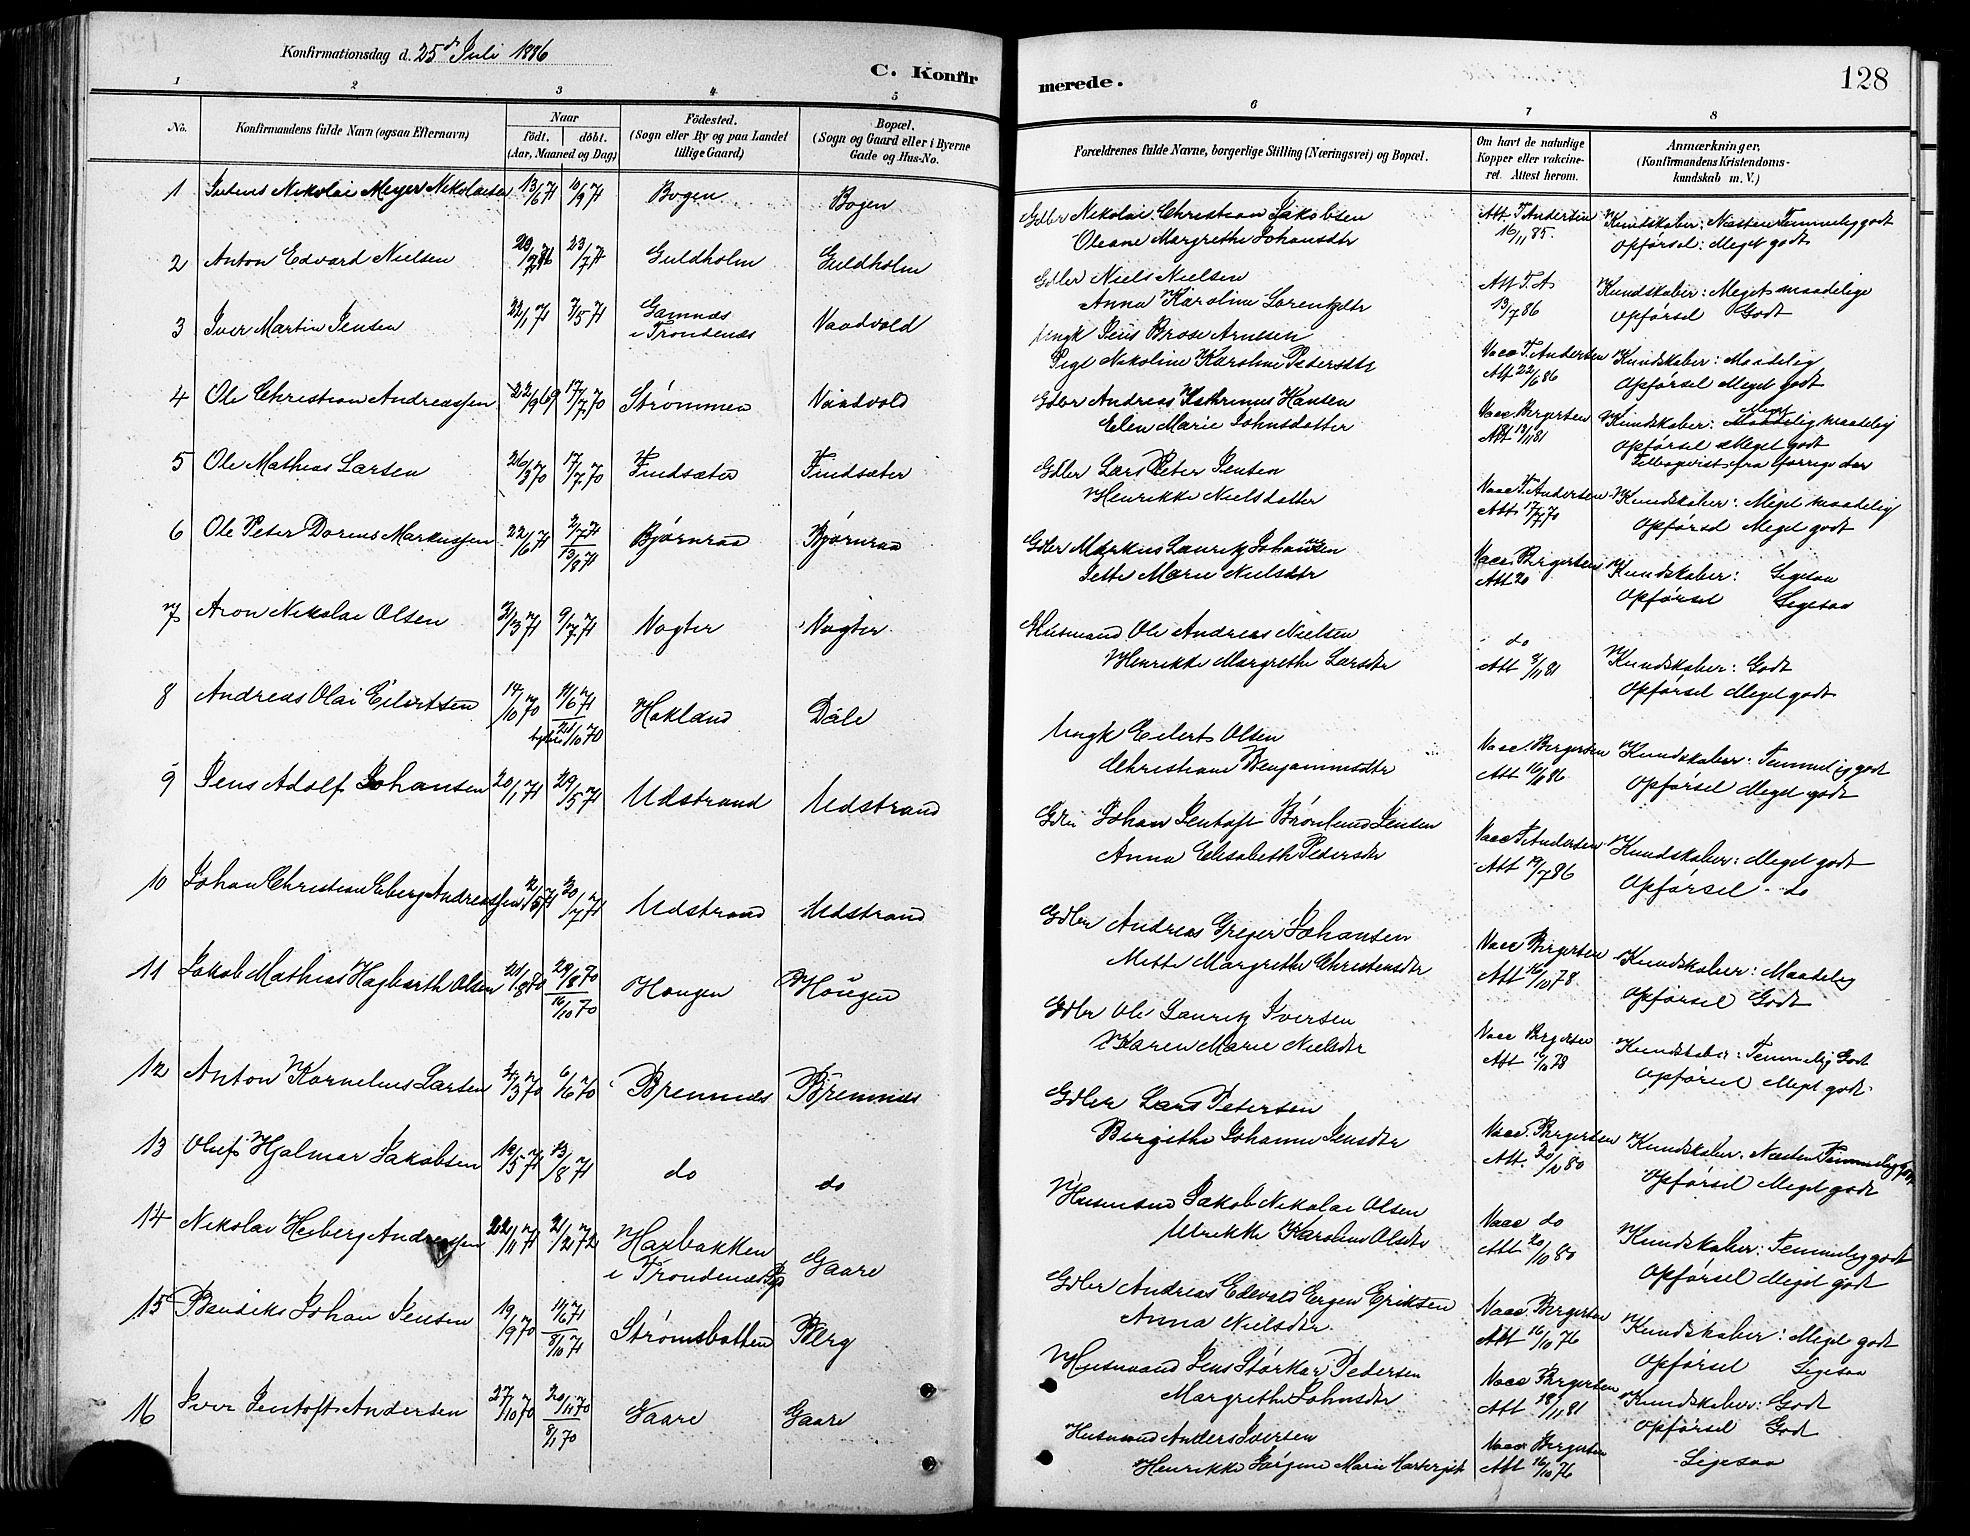 Konfirmationsdag d. 25de Juli 1886
C. Konfirmerede.
128
1 2 3 4 5 6 7 8
No.
Konfirmandens fulde Navn (ogsaa Efternavn)
Naar
födt. döbt.
(Aar, Maaned og Dag)
Födested.
(Sogn eller By og paa Landet
tillige Gaard)
Bopæl.
(Sogn og Gaard eller i Byerne
Gade og Hus-No.
Forældrenes fulde Navne, borgerlige Stilling (Næringsvei) og Bopæl.
Om havt de naturlige
Kopper eller vakcine-
ret. Attest herom.
Anmærkninger.
(Konfirmandens Kristendoms-
kundskab m. V.)
1 Nikolai Meyer Nikolaisen 13/6 71 10/9 71 Bogen Bogen
Gdbr Nikolai Christian Jakobsen Att. T. Andersen Kundskaber: Næsten Temmelig godt
Oleane Margrethe Johansdtr 16/11 85. Opførsel: Meget godt
2 Anton Edvard Nielsen 23/7 71 Guldholm Guldholm
Gdbr Niels Nielsen Att T. A Kundskaber: Meget maadelige
Anna Karolina Lorentzdtr 13/7 86 Opførsel Godt
3 Iver Martin Jensen 22/1 71 7/5 71 Gamnæs i Trondenæs Vaadvold
Ungk Jens Brose Arnesen Vacc T. Andersen Kundskaber: Maadelig
Pige Nikoline Karoline Pedersdtr Att 22/6 86 Opførsel Meget godt
4 Ole Christian Andreassen 22/9 69 17/7 70 Strømmen Vaadvold
Gdbr Andreas Kathrinus Hansen Vacc Bergersen Kundskaber: Meget maadelig
Elen Marie Johnsdatter Att 18/11 81 Opførsel Meget godt
Tilbagevist fra forrige Aar
5 Ole Mathias Larsen 26/3 70 17/7 70 Findsæter Findsæter
Gdbr Lars Peter Jensen Vacc T. Andersen Kundskaber: Meget maadelig
Henrikke Nielsdatter Att 17/7 70 Opførsel Meget godt
6 Ole Peter Dorius Markussen 22/6 71 2/7 71 13/8 71 Bjørnraa Bjørnraa
Gdbr Markus Lauritz Johansen Vacc. Bergersen Kundskaber: Ligesaa
Jette Marie Nielsdtr Att 20 Opførsel Ligesaa
7 Aron Nikolai Olsen 3/3 71 9/7 71 Vogter Vogter
Husmand Ole Andreas Nielsen do Kundskaber: Godt
Henrikke Margrethe Larsdtr Att 8/11 81 Opførsel Meget godt
8 Andreas Olai Eilertsen 14/10 70 11/6 71 /10 70 Hokland Dale
Ungk Eilert Olsen Vacc. Bergersen Kundskaber: Temmelig godt
Christiane Benjaminsdtr Att 16/ 86 Opførsel Meget godt
9 Jens Adolf Johansen 20/1 71 29/5 71 Udstrand Udstrand
Gdbr Johan Jentoft Brønlund Jensen Vacc T. Andersen Kundskaber: Meget godt
Anna Elisabeth Pedersdtr Att 19/7 86 Opførsel do
10 Johan Christian Eberg Andreassen /5 71 30/7 71 Udstrand Udstrand
Gdbr Andreas Greger Johansen Vacc Bergersen Kundskaber: Maadelig
Mette Margrethe Christensdtr Att 16/10 78 Opførsel Godt
11 Jakob Mathias Hagbarth Olsen 21/8 70 29/8 70 16/10 70 Hougen Hougen
Gdbr Ole Lauritz Iversen Vacc Bergersen Kundskaber: Temmelig Godt
Karen Marie Nielsdtr Att 16/10 78 Opførsel Meget godt
12 Anton Kornelius Larsen /3 70 6/6 70 Bremnæs Bremnæs
Gdbr Lars Petersen Vacc. Bergersen Kundskaber: Næsten Temmelig godt
Birgithe Johanne Jensdtr Att. 20/10 80 Opførsel Meget godt
13 Oluf Hjalmar Jakobsen 19/5 71 13/8 71 do do
Husmand Jakob Nikolai Olsen Vacc do Kundskaber: Temmelig godt
Ulrikke Karoline Olsdtr Att 20/10 80 Opførsel Meget godt
14 Nikolai Heiberg Andreassen 22/11 71 2/2 72 Haxbakken i Trondenæs Pg Gaare
Gdbr Andreas Edevald Ergen Eriksen Vacc Bergersen Kundskaber: Meget godt
Anna Nielsdtr Att 16/10 76 Opførsel Ligesaa
15 Bendiks Johan Jensen 19/9 70 11/6 71 8/10 71 Strømsbotten Berg
Husmand Jens Størker Pedersen Vacc Bergersen Kundskaber: Godt
Margrethe Johnsdtr Att 18/11 81 Opførsel Godt
16 Iver Jentoft Andersen 27/10 70 20/11 70 8/1 70 Gaare Gaare
Husmand Anders Iversen Vacc Bergersen Ligesaa
Henrikke Jørgine Marie Att 16/10 76